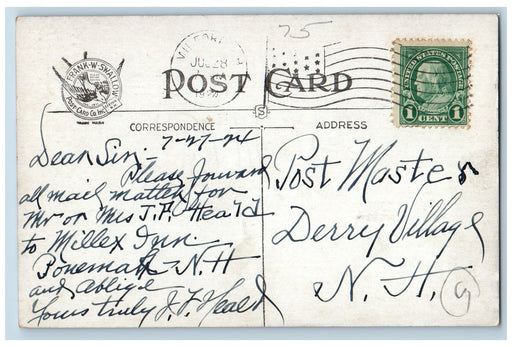 75
FRANK·W·SWALLOW
POST CARD CO. INC.
TRADE MARK
JUL 28
UNITED STATES POSTAGE
1 1
CENT
POST CARD
CORRESPONDENCE
ADDRESS
7-27-24
Dear Sir:
Please forward
all mail matter for
Mr or Mrs J.F. Heald
to Millex Inn.
Ponemah - N.H
and Ablige
Yours truly J.F. Heald
Post Master
Derry Village
N. H.